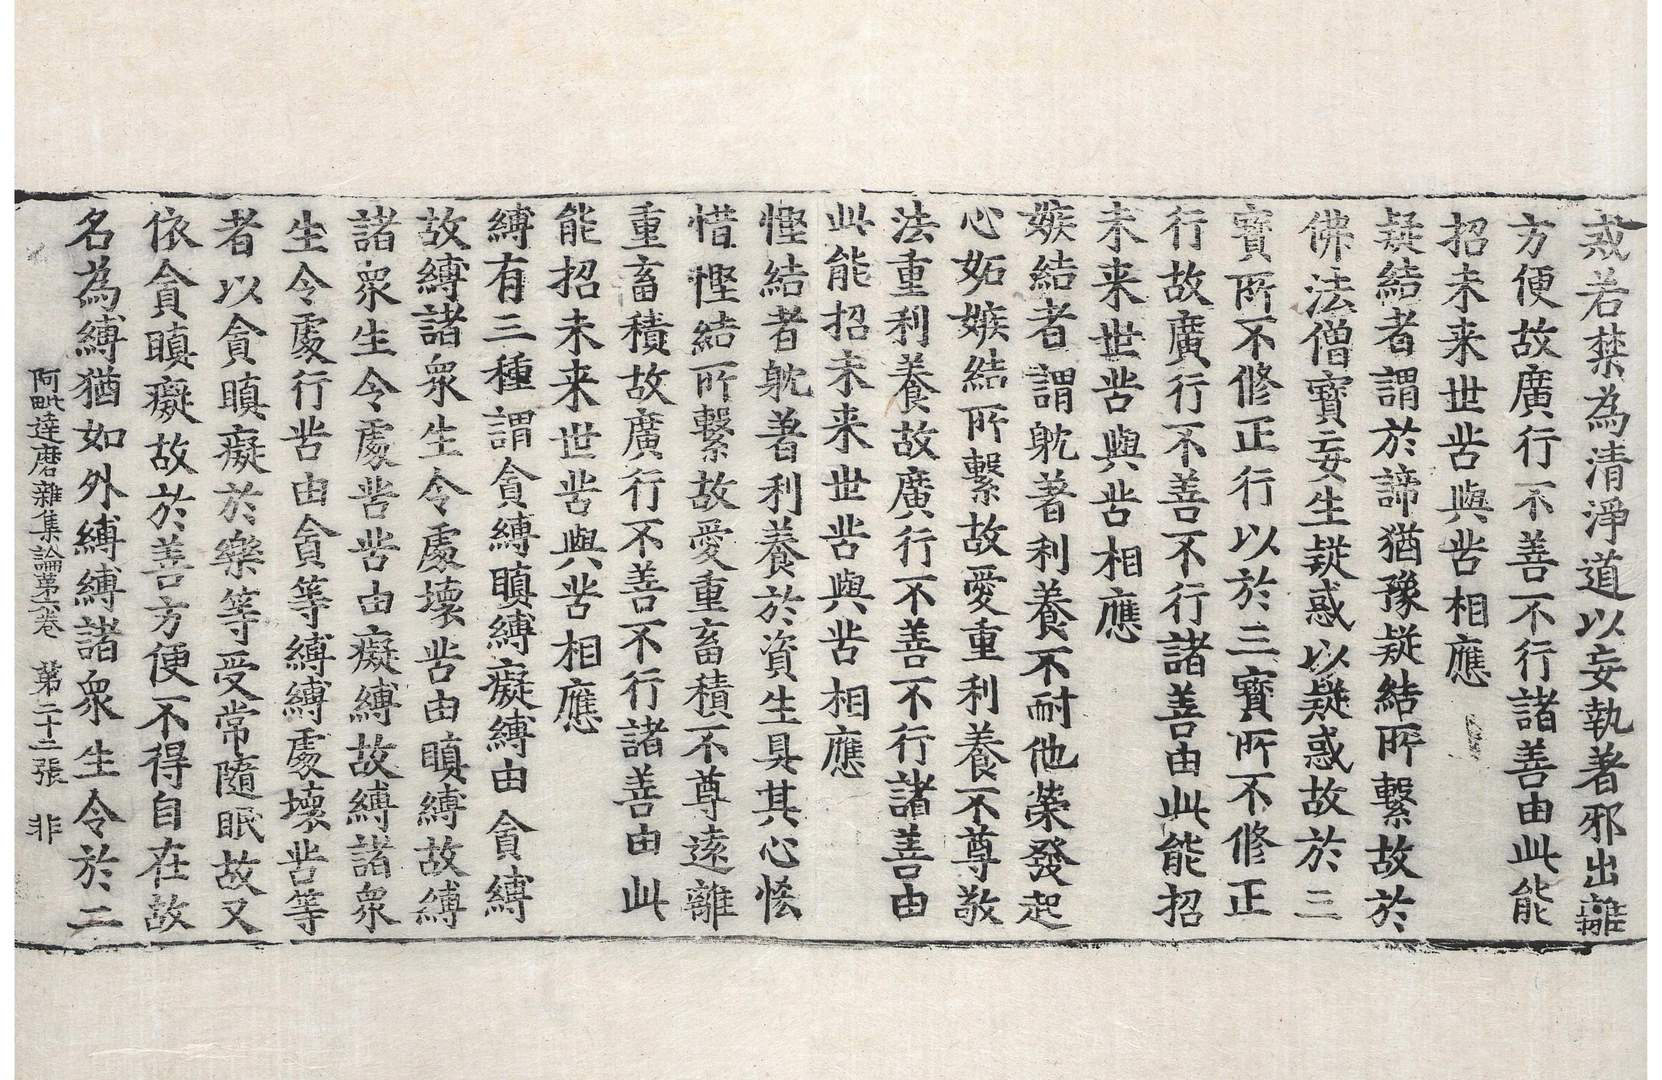 戒若禁為清淨道以妄執著邪出離
方便故廣行不善不行諸善由此能
招未来世苦與苦相應
疑結者謂於諦猶豫疑結所繫故於
佛法僧寳妄生疑惑以疑惑故於三
寳所不修正行以於三寳所不修正
行故廣行不善不行諸善由此能招
未来世苦與苦相應
嫉結者謂躭著利養不耐他榮發起
心妬嫉結所繫故愛重利養不尊敬
法重利養故廣行不善不行諸善由
此能招未来世苦與苦相應
慳結者躭著利養於資生具其心悋
惜慳結所繫故愛重畜積不尊遠離
重畜積故廣行不善不行諸善由此
能招未来世苦與苦相應
縛有三種謂貪縛瞋縛癡縛由貪縛
故縛諸衆生令處壞苦由瞋縛故縛
諸衆生令處苦苦由癡縛故縛諸衆
生令處行苦由貪等縛縛處壞苦等
者以貪瞋癡於樂等受常隨眠故又
依貪瞋癡故於善方便不得自在故
名為縛猶如外縛縛諸衆生令於二
阿毗達磨雜集論第六卷 第二十二張 非